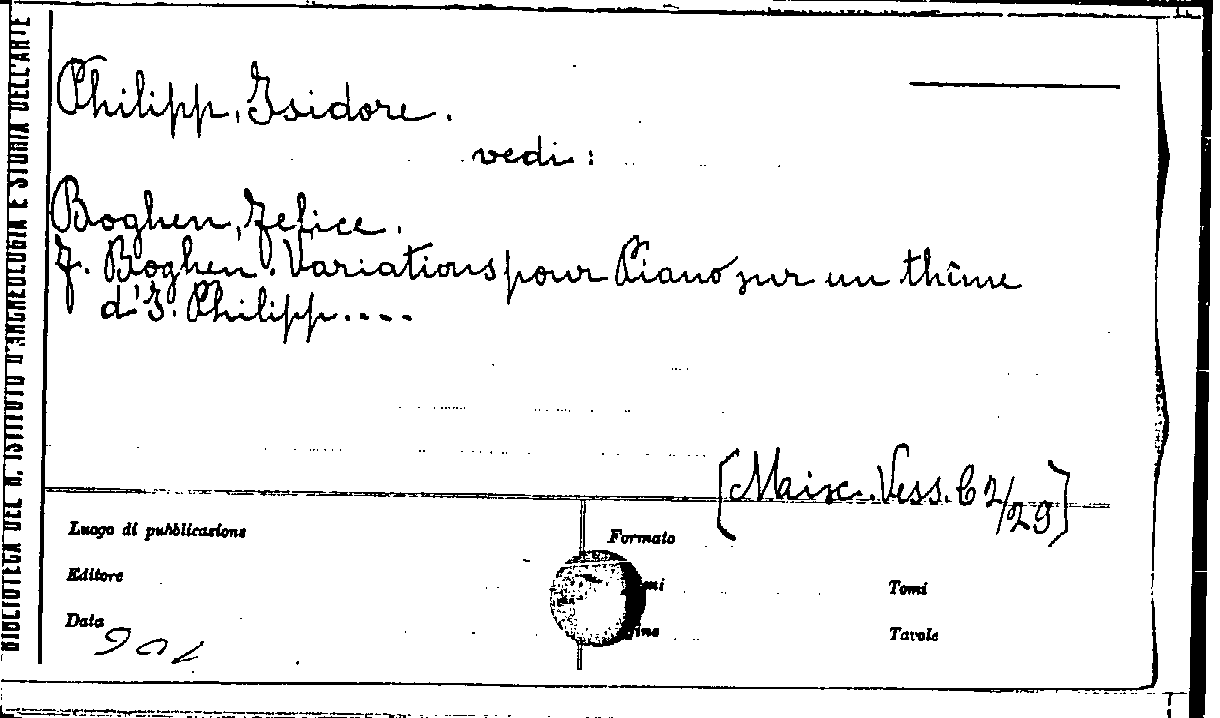 BIBLIOTECA DEL R. ISTITUTO D'ARCHEOLOGIA E STORIA DELL'ARTE
Philipp, Isidore.
vedi:
Boghen, Felice.
F. Boghen. Variations pour Piano sur un thême
d'I. Philipp....
[Maisc. Vess. C 2/29]
Luogo di pubblicazione
Formato
Editore
Tomi
Data
Tavole